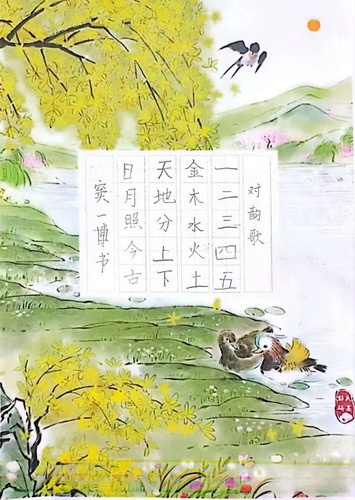 对韵歌
一二三四五
金木水火土
天地分上下
日月照今古
窦一博书